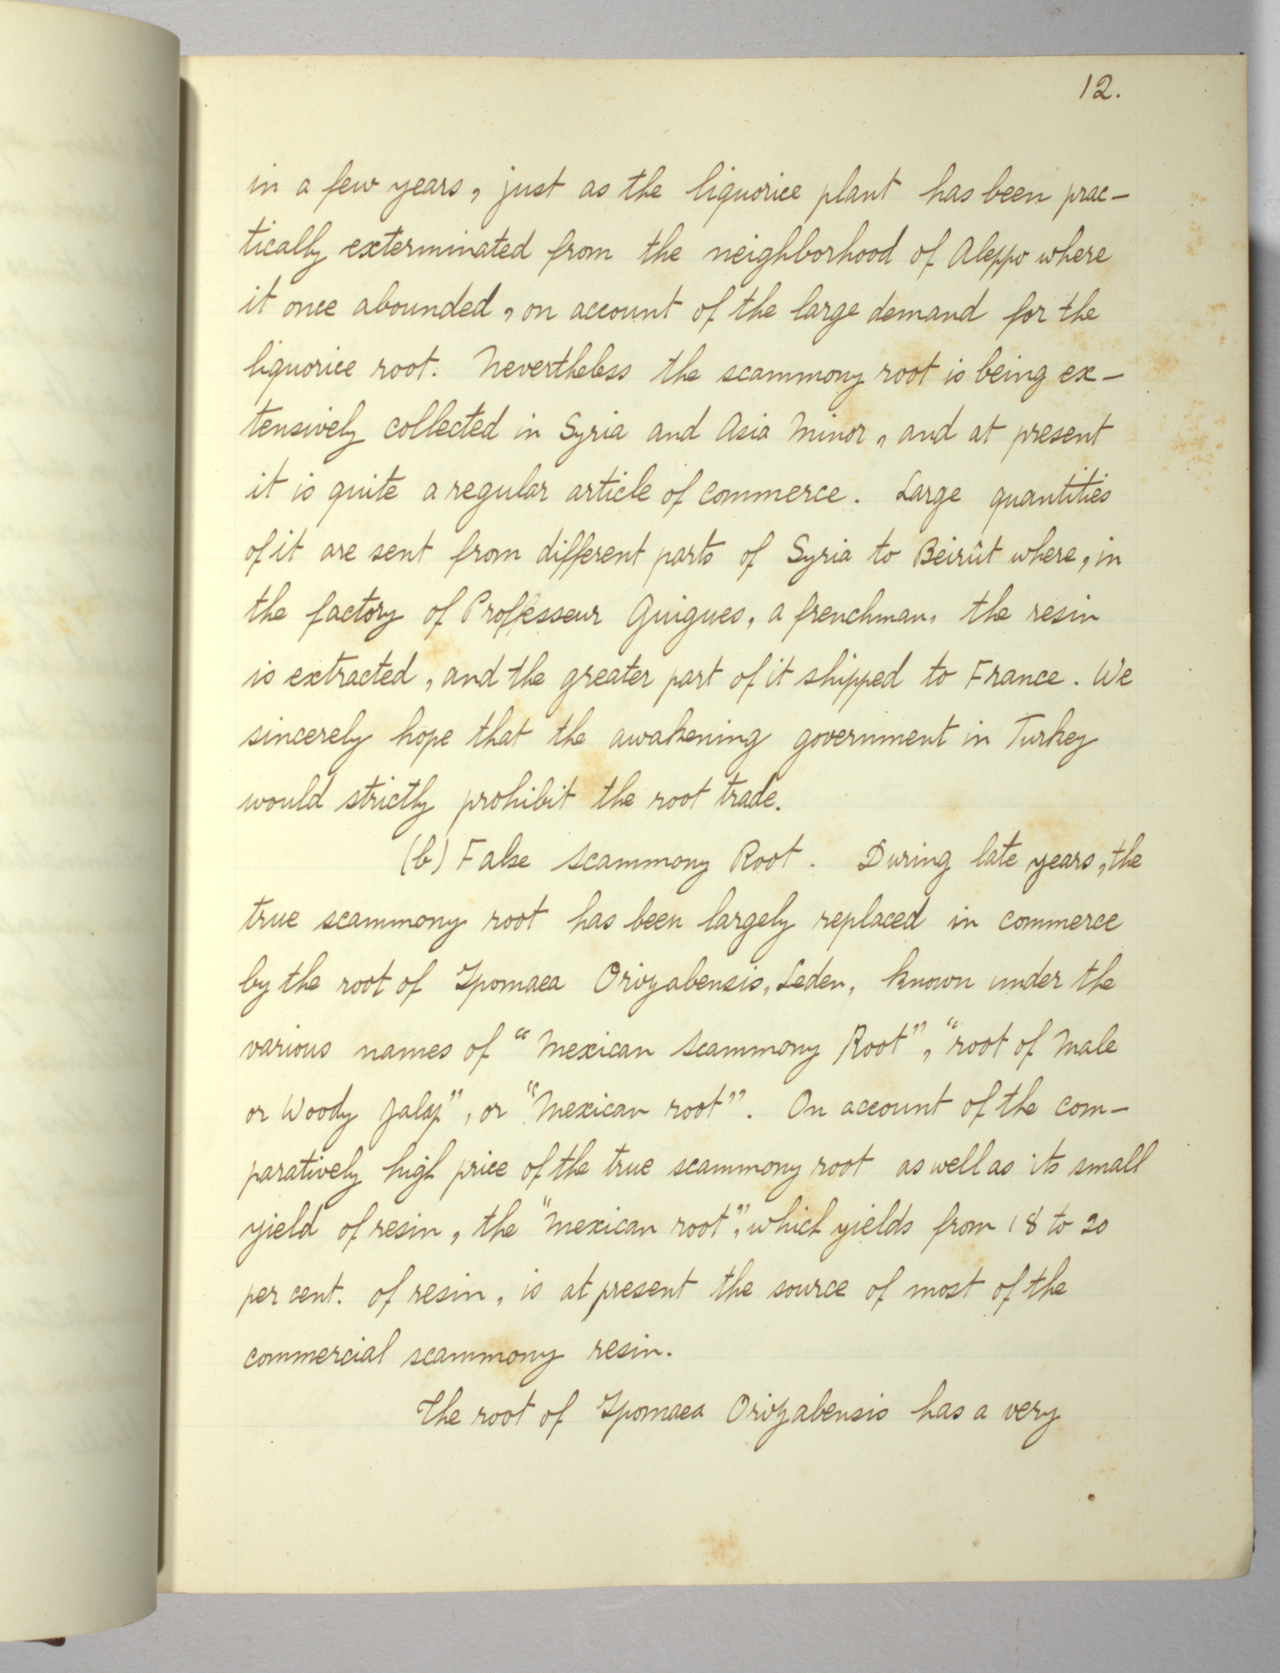 12.
in a few years, just as the liquorice plant has been prac-
tically exterminated from the neighborhood of Aleppo where
it once abounded, on account of the large demand for the
liquorice root. Nevertheless the scammony root is being ex-
tensively collected in Syria and Asia Minor, and at present
it is quite a regular article of commerce. Large quantities
of it are sent from different parts of Syria to Beirût where, in
the factory of Professeur Guigues, a frenchman, the resin
is extracted, and the greater part of it shipped to France. We
sincerely hope that the awakening government in Turkey
would strictly prohibit the root trade.
(b) False Scammony Root. During late years, the
true scammony root has been largely replaced in commerce
by the root of Ipomaea Orizabensis, Leden, known under the
various names of "Mexican Scammony Root", "root of Male
or Woody Jalap", or "Mexican root". On account of the com-
paratively high price of the true scammony root as well as its small
yield of resin, the "Mexican root", which yields from 18 to 20
per cent. of resin, is at present the source of most of the
commercial scammony resin.
The root of Ipomaea Orizabensis has a very